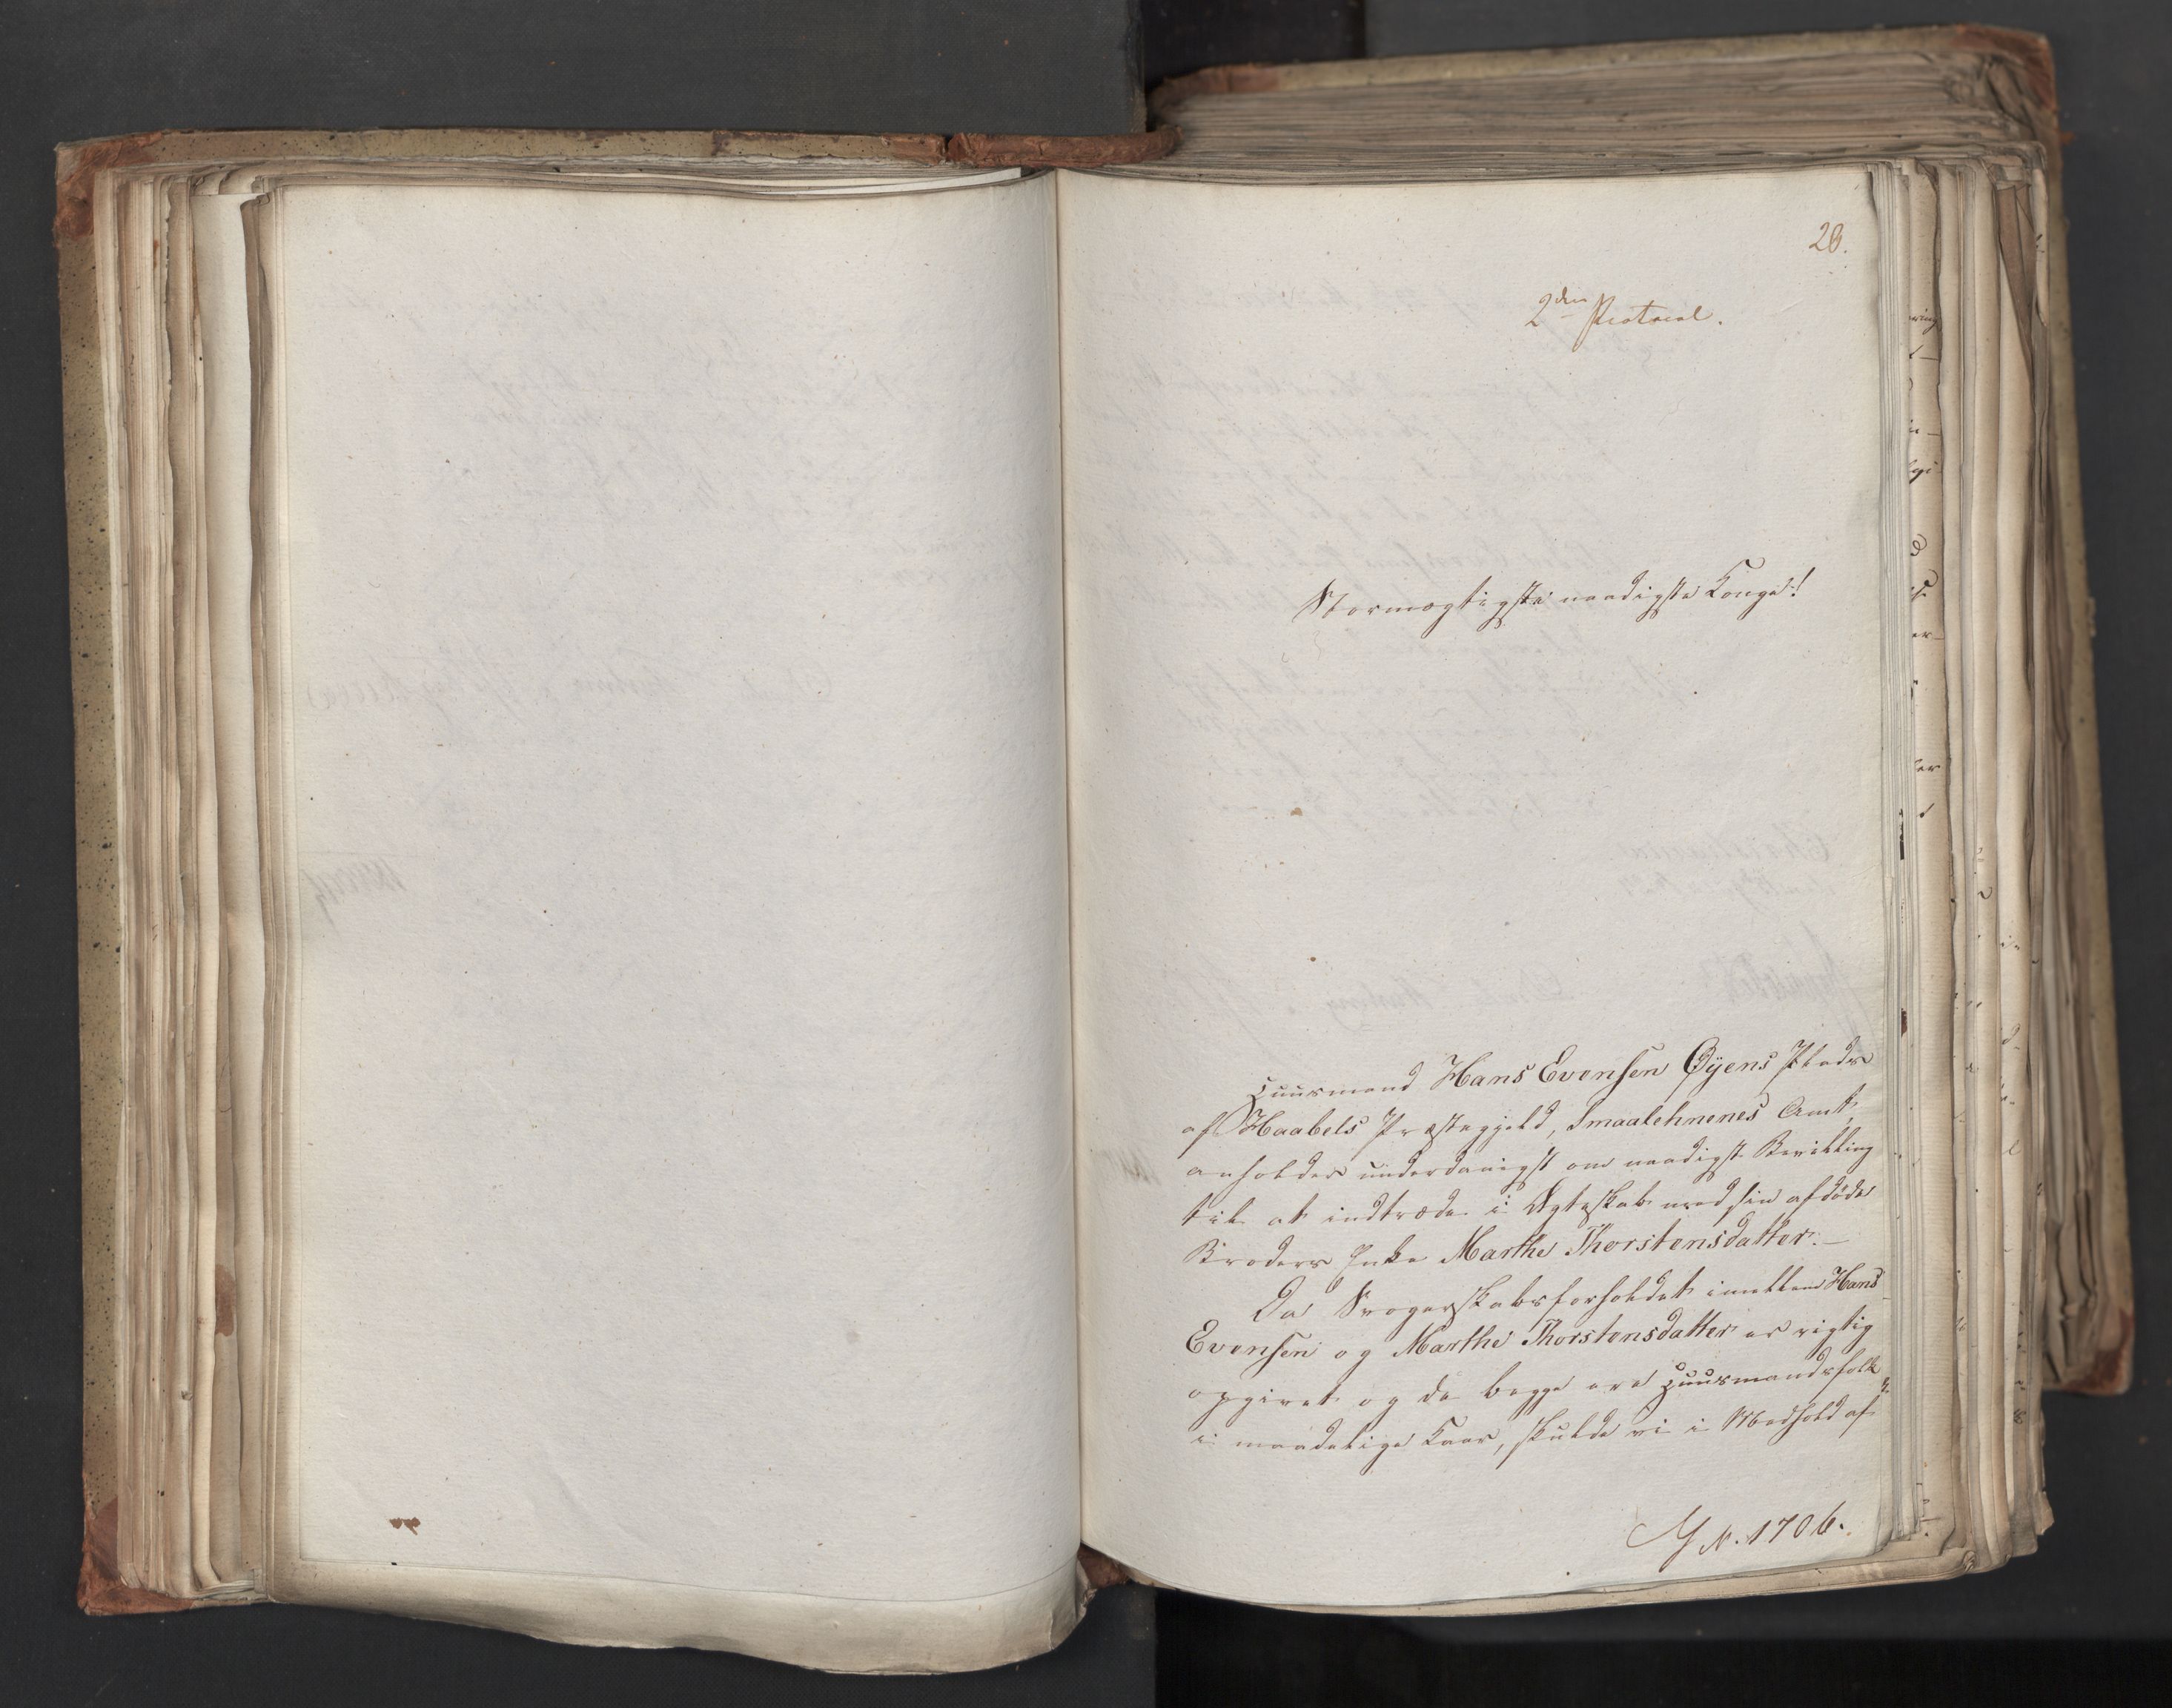 28.
2den Protocol.
Stormægtigste naadigste Konge!
Huusmand Hans Evensen Øyens Plads
af Haabels Præstegjeld, Smaalehnenes Amt,
anholder underdanigst om naadigst Bevilling
til at indtræde i Ægteskab med sin afdøde
Broders Enke Marthe Thorstensdatter. —
Da Svogerskabsforholdet imellem Hans
Evensen og Marthe Thorstensdatter er rigtig
opgivet og da begge ere Huusmandsfolk
i maadelige Kaar, skulde vi i Medhold af
N. 1706.